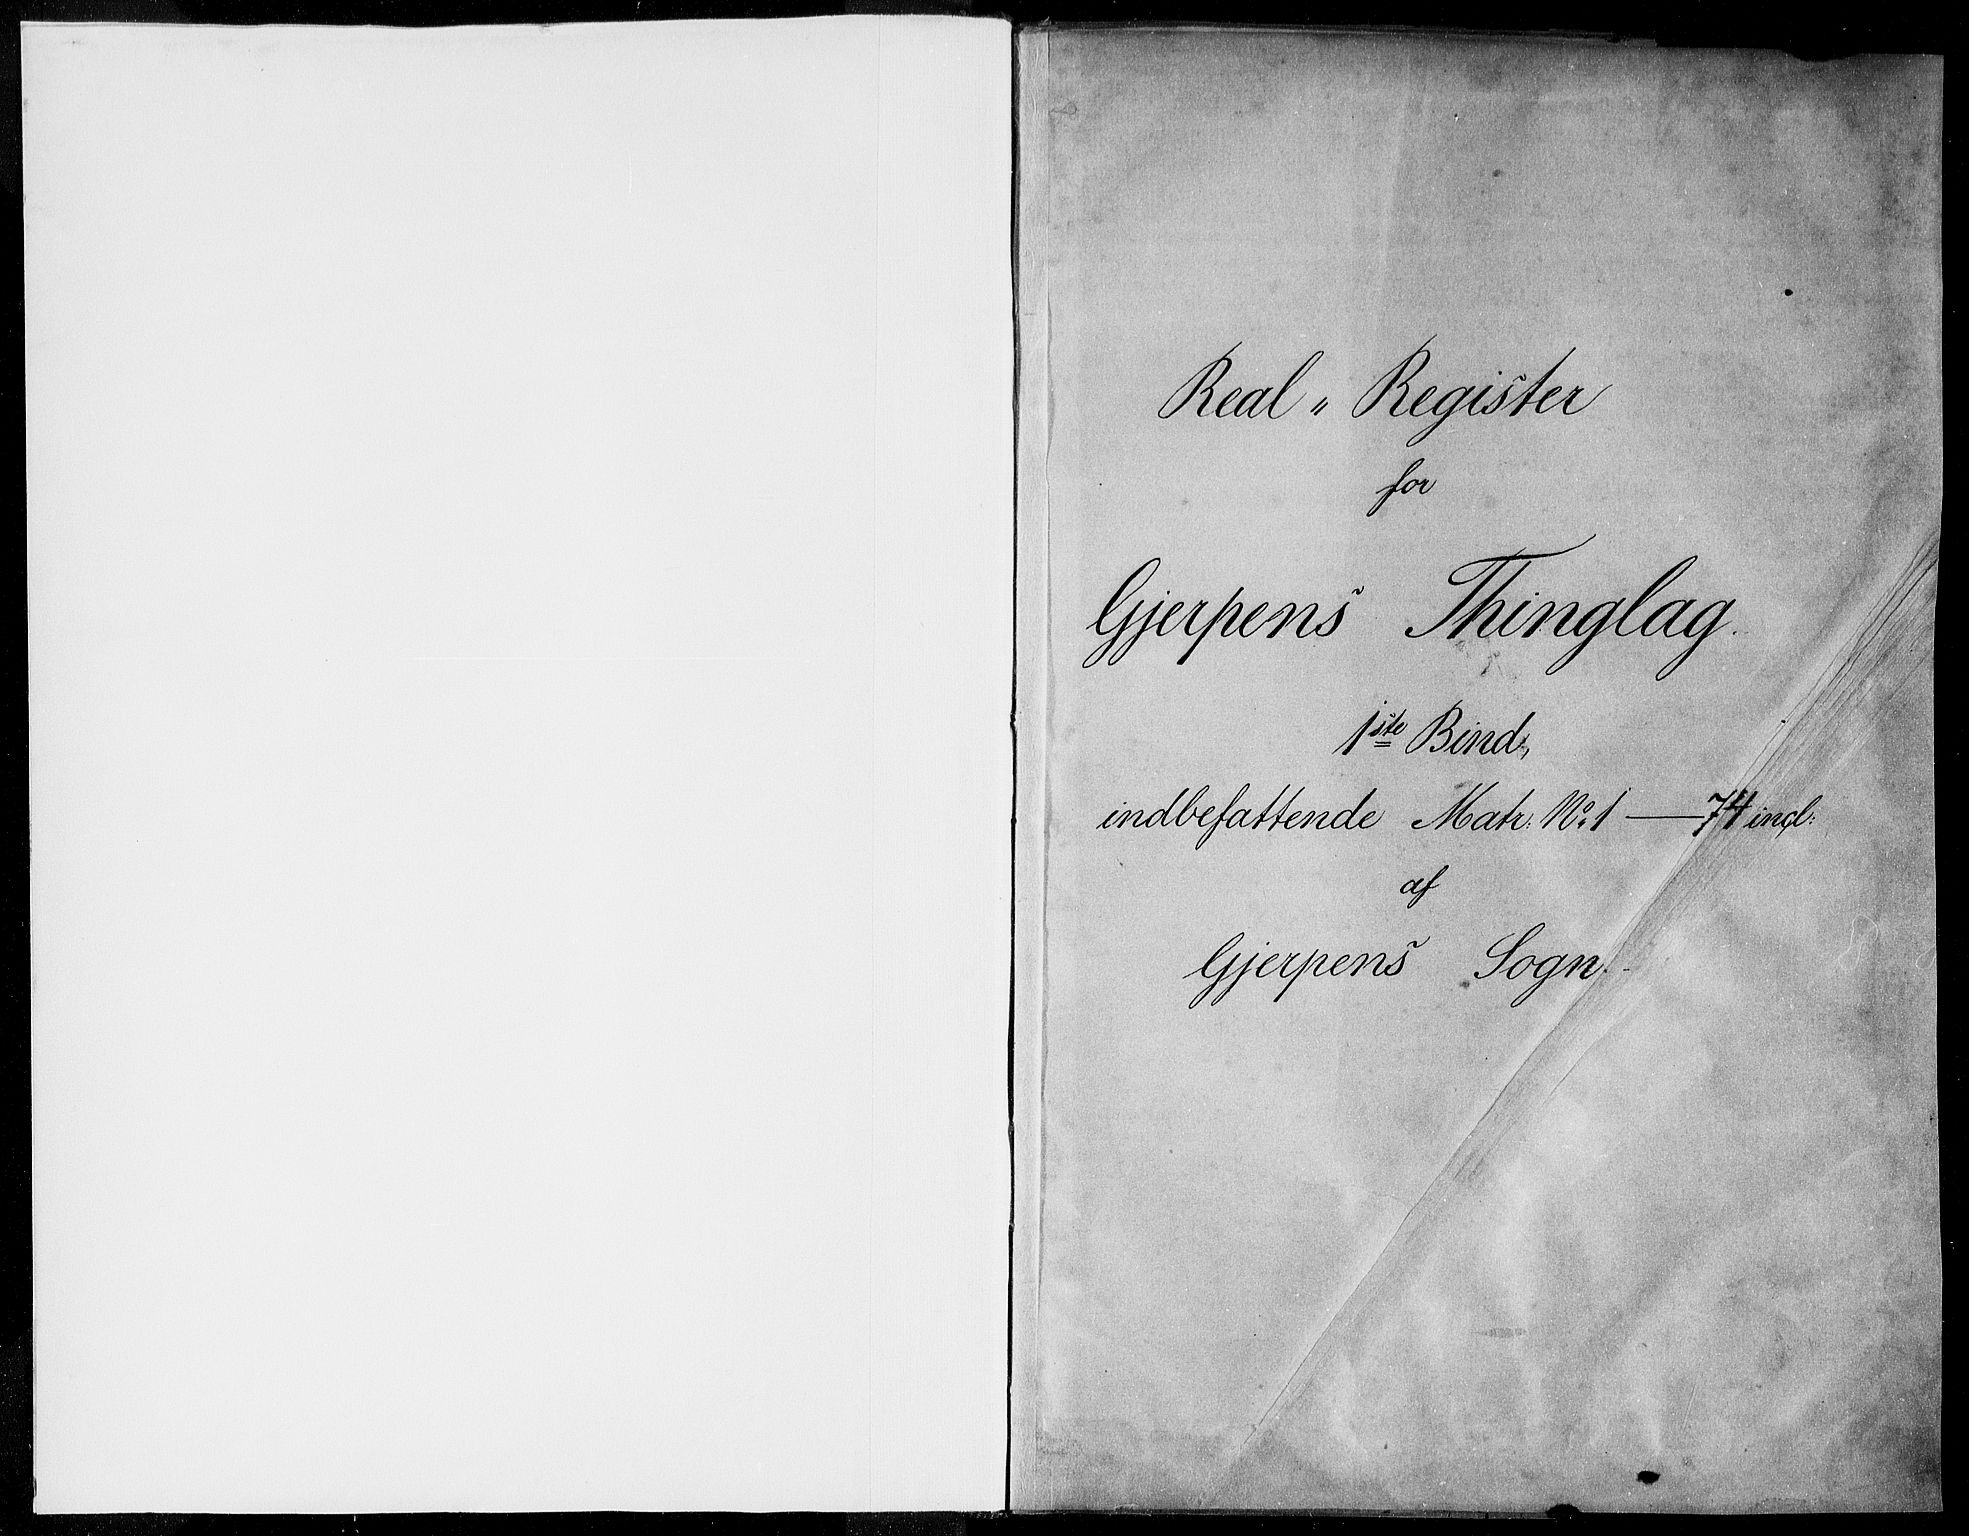 Real „ Register
for
Gjerpens Thinglag.
1ste Bind,
indbefattende Matr: No. 1 — 74 incl:
af
Gjerpens Sogn.